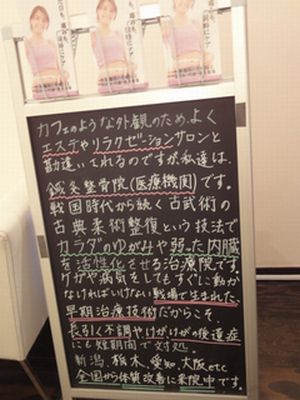 カフェのような外観のため、よく
エステやリラクゼーションサロンと
勘違いされるのですが、私達は、
鍼灸整骨院(医療機関)です。
戦国時代から続く古武術の
古典柔術整復という技法で
カラダのゆがみや弱った内臓
を活性化させる治療院です。
ケガや病気をしてもすぐに動か
なければいけない戦場で生まれた、
早期治療技術だからこそ、
長引く不調やけがの後遺症
にも短期間で対処。
新潟、栃木、愛知、大阪、etc
全国から体質改善に来院中です。